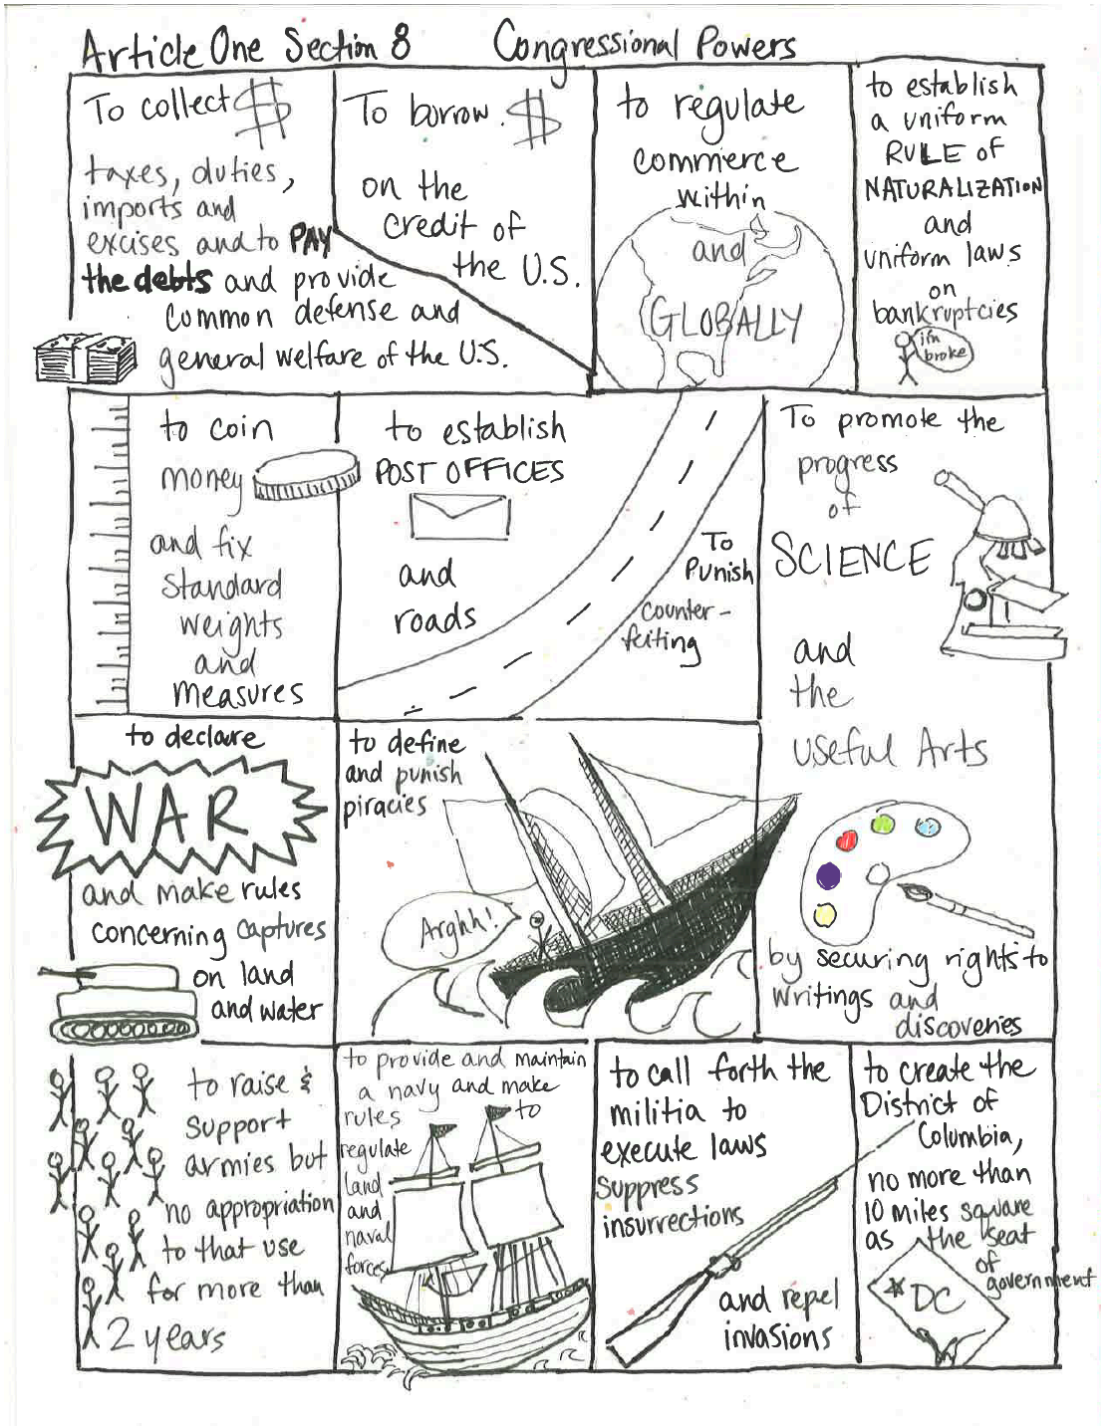 Article One Section 8 Congressional Powers
To collect $
taxes, duties,
imports and
excises and to PAY
the debts and provide
common defense and
general welfare of the U.S.
To borrow $
on the
credit of
the U.S.
to regulate
commerce
within
and
GLOBALLY
to establish
a uniform
RULE of
NATURALIZATION
and
uniform laws
on
bankruptcies
i'm
broke
to coin
money
and fix
standard
weights
and
measures
to establish
POST OFFICES
and
roads
To
Punish
counter-
feiting
To promote the
progress
of
SCIENCE
and
the
useful Arts
by securing rights to
writings and
discoveries
to declare
WAR
and make rules
concerning captures
on land
and water
to define
and punish
piracies
Arghh!
to raise &
support
armies but
no appropriation
to that use
for more than
2 years
to provide and maintain
a navy and make
rules to
regulate
land
and
naval
forces
to call forth the
militia to
execute laws
suppress
insurrections
and repel
invasions
to create the
District of
Columbia,
no more than
10 miles square
as the seat
of
government
DC